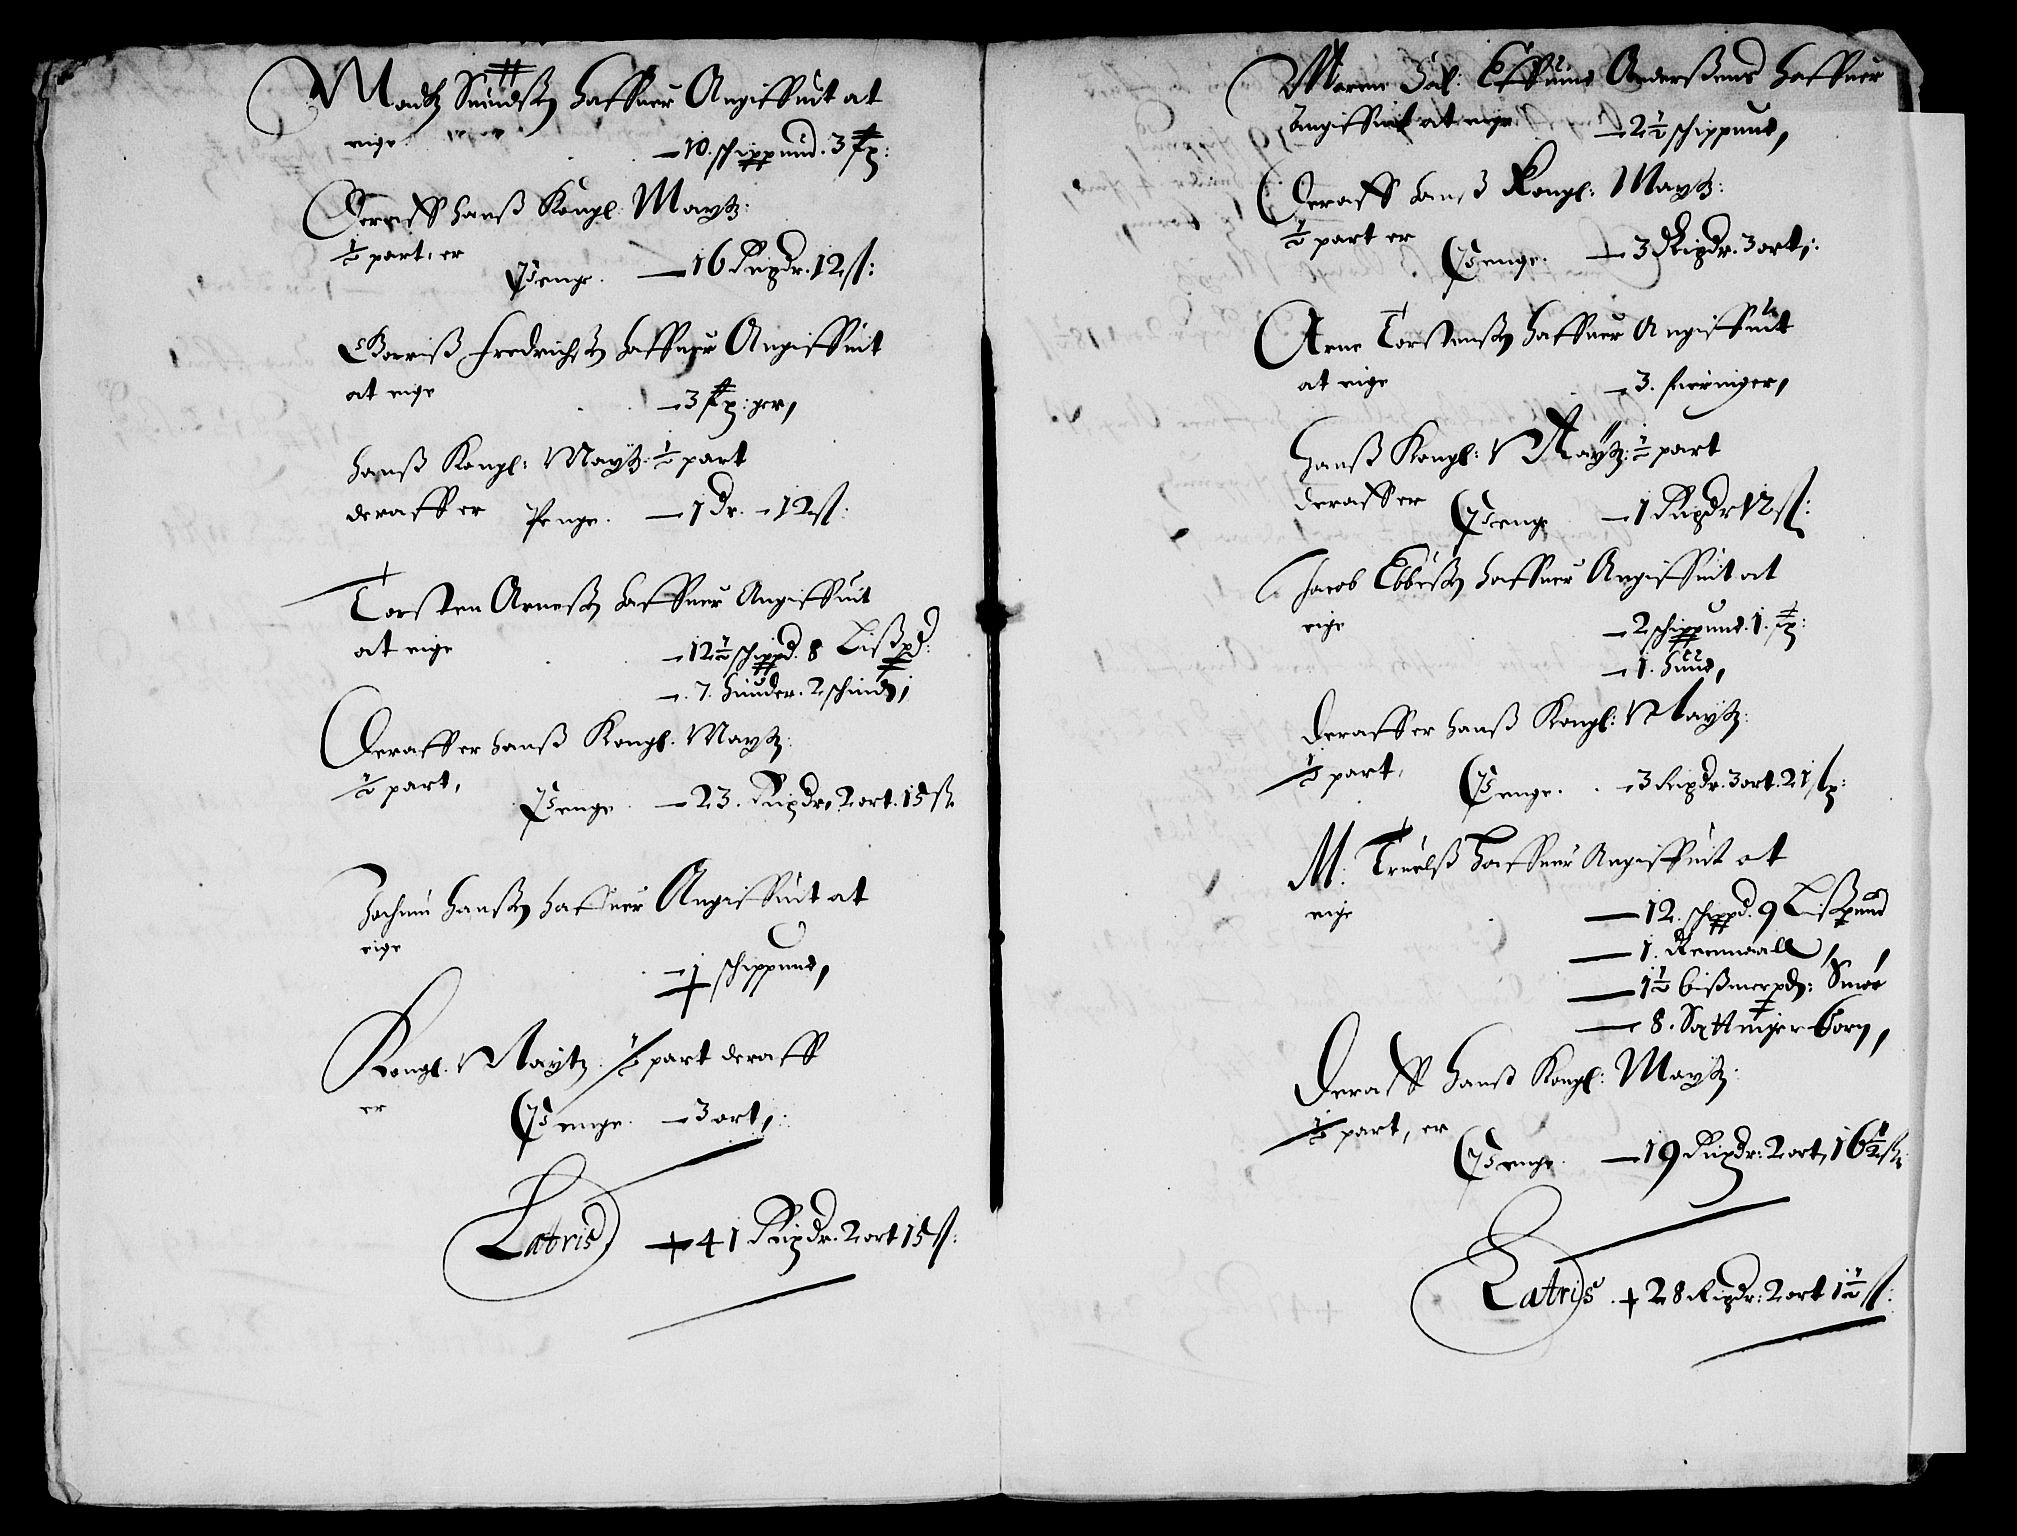 Madtz Suendsøn haffuer Angiffuit at
eige
— 10. schippund. 3 #p:
Deraff hans Kongl. Maytz:
1/2 part. er
Penge. — 16 Rixdr. 12 ß:
Giøriss Fredrichsøn haffuer Angiffuit
at eige
— 3 #p:ger,
hanss Kongl: Maytz: 1/2 part
deraff er Penge. — 1 Dr. - 12 ß:
Torsten Arnesøn haffuer Angiffuit
at eige
— 12 1/2 schippd. 8 Lisspd:
— 7. huuder. 2 schind,
Deraff er hanss Kongl. Maytz.
1/2 part,
Penge — 23. Rixdr, 2 ort. 15 ß
Jochum hanssøn haffuer Angiffuit at
eige
— 1 schippund,
Kongl. Maytz 1/2 part deraff
er
Penge. — 3 ort,:
Latris + 41 Rixdr. 2 ort 15 ß:
Maren Sal: Effuind Anderssens haffuer
Angiffuit at eige — 2 1/2 schippund,
Deraff hanss Kongl: Maytz:
1/2 part er
Penge. — 3 Rixdr. 3 ort,:
Arne Torstensøn haffuer Angiffuit
at eige — 3. fieringer,
hanss Kongl: Maytz: 1/2 part
deraff er Penge — 1 Rixdr 12 ß:
Jacob Ebbesøn haffuer Angiffuit at
eige
— 2 schippund. 1. #p:
— 1. huud,
Deraff er hanss Kongl: Maytz:
1/2 part,
Penge. — 3 Rixdr. 3 ort. 21 ß:
M. Truelss haffuer Angiffuit at
eige
— 12. schippd. 9 Lisspund
— 1.
— 1 1/2 bissmerpd: Smør
— 8. Settinger Corn,
Deraff hanss Kongl: Maytz:
1/2 part, er
Penge. — 19 Rixdr: 2 ort, 16 1/2 ß:
Latris. + 28 Rixdr: 2 ort 1 1/2 ß: